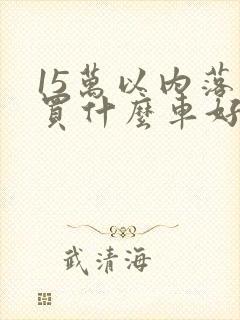 15萬以內落
買什麼車好
武清海